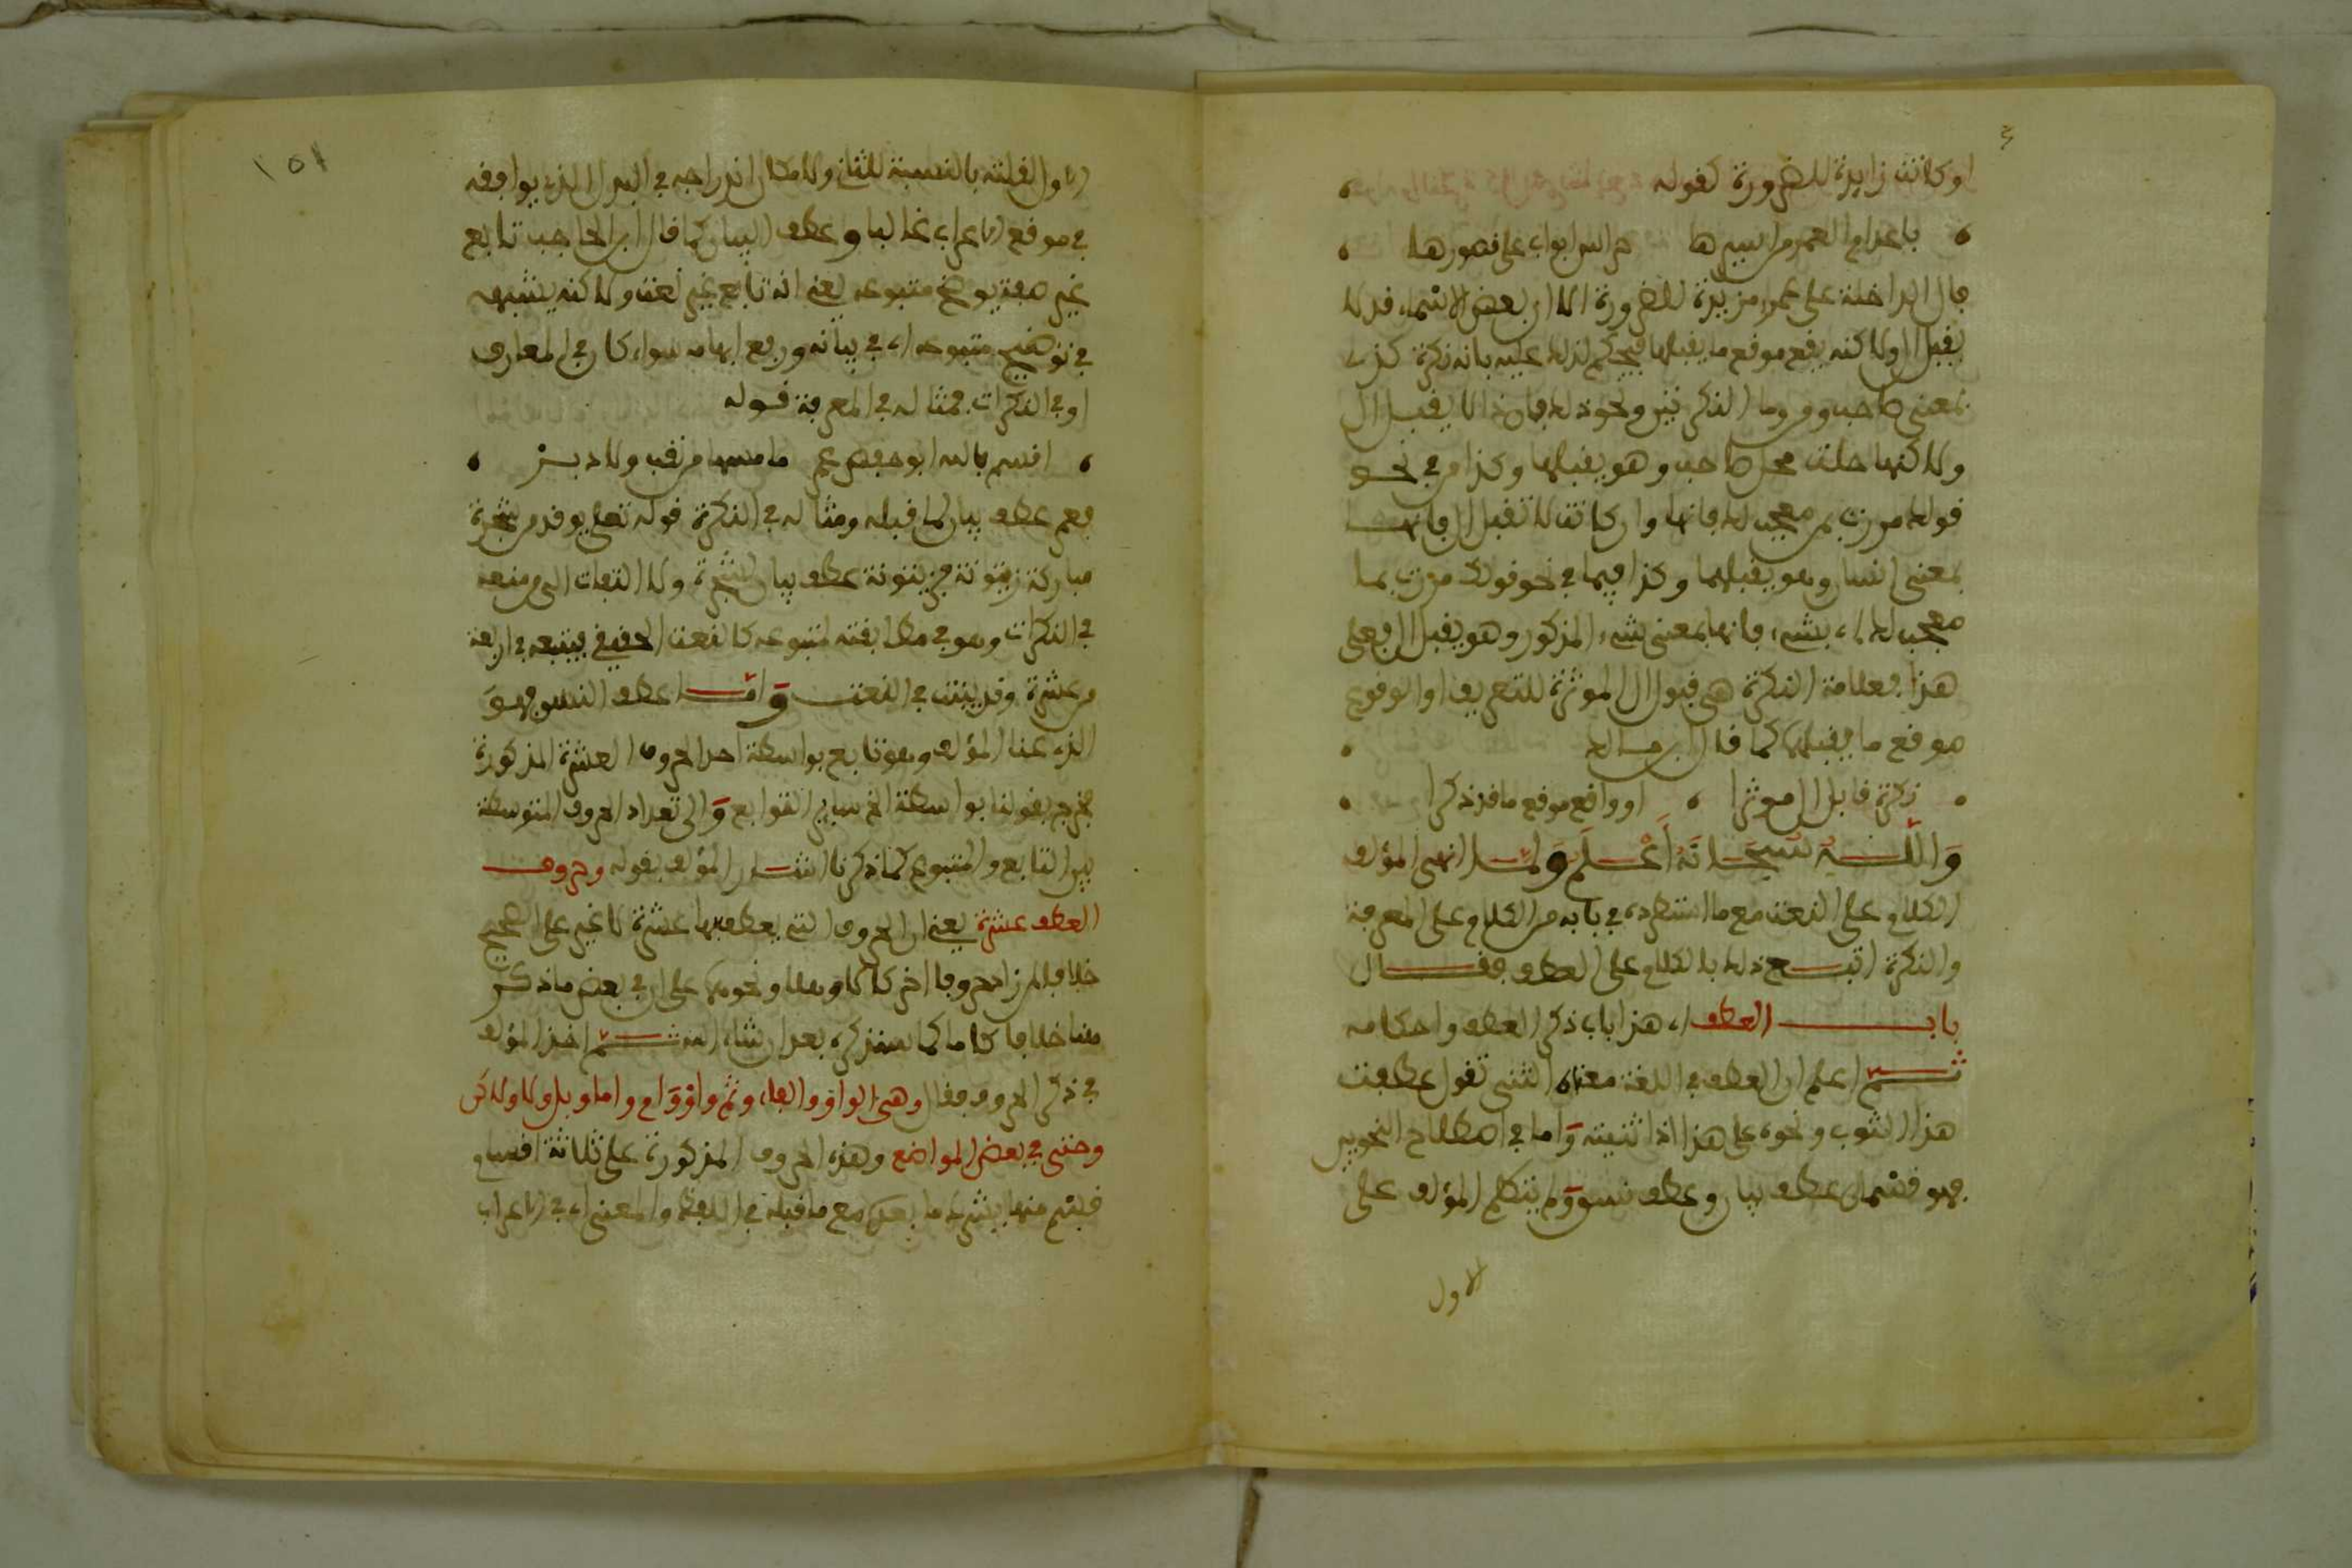 او كانت زايدة للضرورة كقوله
باعد ام العمرو من اسيرها حراس ابواب على قصورها
فال الداخلة على عمرو مزيدة للضرورة الا ان بعض الاسماء قد لا
يقبل ال ولاكنه يقع موقع ما يقبلها فيحكم لذلك عليه بانه نكرة كذي
بمعنى صاحب ومن وما النكرتين ونحو ذلك فان ذا لا يقبل ال
ولاكنها حلت محل صاحب وهو يقبلها وكذا من في نحو
قولك مررت بمن معجب لك فانها وان كانت لا تقبل ال فانها
بمعنى انسان وهو يقبلها وكذا فيما في نحو قولك مررت بما
معجب لك اي بشيء فانها بمعنى شيء المذكور وهو يقبل ال فعلى
هذا فعلامة النكرة هي قبول ال الموثرة للتعريف او الوقوع
موقع ما يقبلها كما قال ابن مالك
نكرة قابل ال موثرا او واقع موقع ما قد ذكرا
والله سبحانه اعلم ولما انهى المؤلف
الكلام على النعت مع ما استطرده في بابه من الكلام على المعرفة
والنكرة اتبع ذلك بالكلام على العطف فقال
باب العطف اي هذا باب ذكر العطف واحكامه
ثم اعلم ان العطف في اللغة معناه الثني تقول عطفت
هذا الثوب ونحوه على هذا اذا ثنيته واما في اصطلاح النحويين
فهو قسمان عطف بيان وعطف نسق ولم يتكلم المؤلف على
الاول
١٥١
الاول لقلته بالنسبة للثاني ولامكان اندراجه في البدل الذي يوافقه
في موقع الاعراب غالبا وعطف البيان كما قال ابن الحاجب تابع
غير صفة يوضح متبوعه يعني انه تابع غير نعت ولاكنه يشبهه
في توضيح متبوعه اي في بيانه ورفع ابهامه سواء كان في المعارف
او في النكرات فمثاله في المعرفة قوله
اقسم بالله ابو حفص عمر ما مسها من نقب ولا دبر
فعمر عطف بيان لما قبله ومثاله في النكرة قوله تعلى يوقد من شجرة
مباركة زيتونة فزيتونة عطف بيان لشجرة ولا التفات الى من منعه
في النكرات وهو في مطابقته لمتبوعه كالنعت الحقيقي فيتبعه في اربعة
من عشرة وقد بينت في النعت واما عطف النسق فهو
الذي عنا المؤلف وهو تابع بواسطة احد الحروف العشرة المذكورة
فخرج بقولنا بواسطة الخ ساير التوابع والى تعداد الحروف المتوسطة
بين التابع والمتبوع كما ذكرنا اشار المؤلف بقوله وحروف
العطف عشرة يعني ان الحروف التي يعطف بها عشرة لا غير على الصحيح
خلافا لمن زاد حروفا اخر كالا وهلا ونحوهما على ان في بعض ما ذكر
هنا خلافا كاما كما سنذكره بعد ان شاء الله ثم اخذ المؤلف
في ذكر الحروف فقال وهي الواو والفاء وثم واو وام واما وبل ولا ولاكن
وحتى في بعض المواضع وهذه الحروف المذكورة على ثلاثة اقسام
قسم منها يشرك ما بعده مع ما قبله في اللفظ والمعنى اي في الاعراب